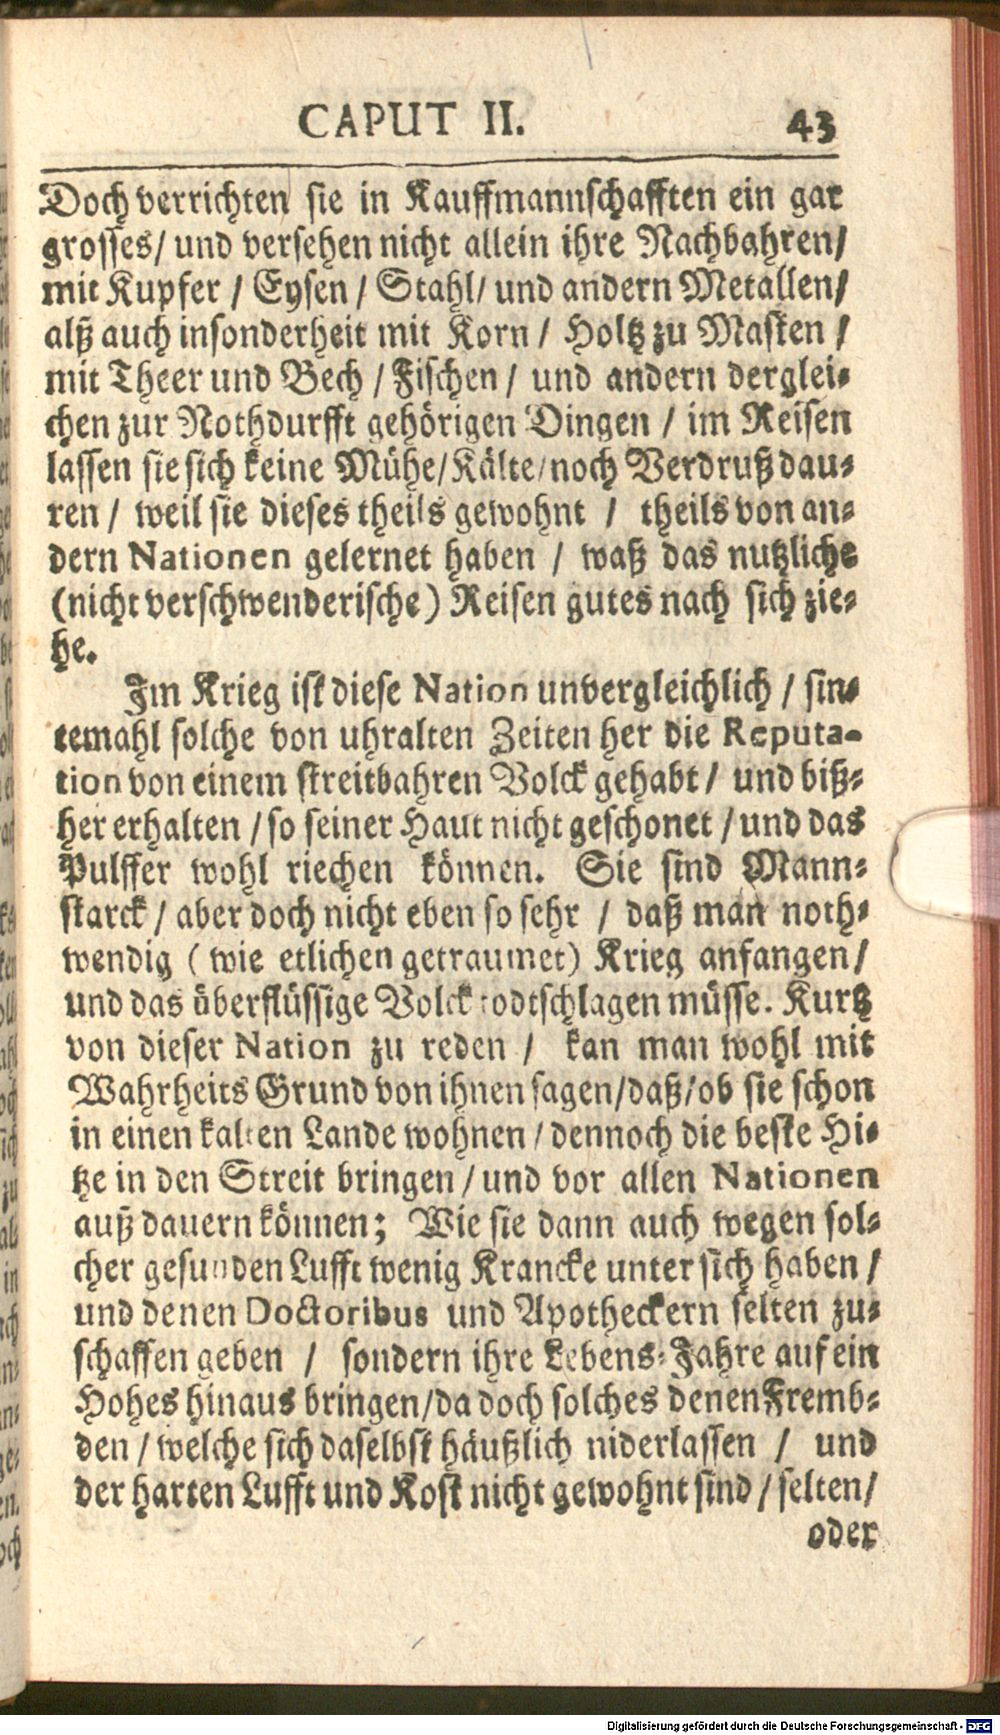 CAPUT II. 43
Doch verrichten sie in Kauffmannschafften ein gar
grosses/ und versehen nicht allein ihre Nachbahren/
mit Kupfer / Eysen / Stahl/ und andern Metallen/
alß auch insonderheit mit Korn / Holtz zu Masten /
mit Theer und Bech / Fischen / und andern derglei-
chen zur Nothdurfft gehörigen Dingen / im Reisen
lassen sie sich keine Mühe/ Kälte/ noch Verdruß dau-
ren / weil sie dieses theils gewohnt / theils von an-
dern Nationen gelernet haben / waß das nutzliche
(nicht verschwenderische) Reisen gutes nach sich zie-
he.
Im Krieg ist diese Nation unvergleichlich / sin-
temahl solche von uhralten Zeiten her die Reputa-
tion von einem streitbahren Volck gehabt / und biß-
her erhalten / so seiner Haut nicht geschonet / und das
Pulffer wohl riechen können. Sie sind Mann-
starck / aber doch nicht eben so sehr / daß man noth-
wendig ( wie etlichen getraumet) Krieg anfangen /
und das überflüssige Volck todtschlagen müsse. Kurtz
von dieser Nation zu reden / kan man wohl mit
Wahrheits Grund von ihnen sagen/daß/ob sie schon
in einen kalten Lande wohnen / dennoch die beste Hi-
tze in den Streit bringen / und vor allen Nationen
auß dauern können; Wie sie dann auch wegen sol-
cher gesunden Lufft wenig Krancke unter sich haben /
und denen Doctoribus und Apotheckern selten zu-
schaffen geben / sondern ihre Lebens-Jahre auf ein
Hohes hinaus bringen/da doch solches denen Fremb-
den / welche sich daselbst häußlich niderlassen / und
der harten Lufft und Kost nicht gewohnt sind / selten/
oder
Digitalisierung gefördert durch die Deutsche Forschungsgemeinschaft - DFG